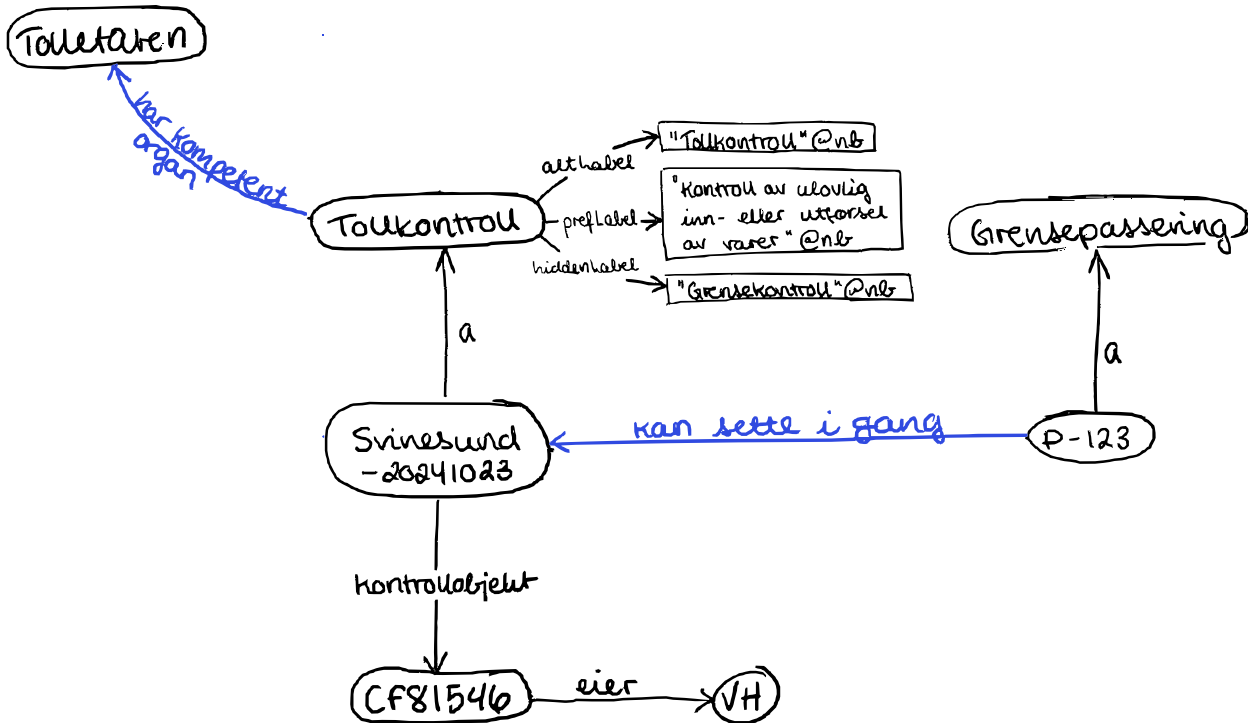 Tolletaten
har kompetent
organ
altLabel
"Tollkontroll"@nb
Tollkontroll
prefLabel
"Kontroll av ulovlig
inn- eller utførsel
av varer"@nb
hiddenLabel
"Grensekontroll"@nb
Grensepassering
a
a
Svinesund
-20241023
kan sette i gang
P-123
kontrollobjekt
CF81546
eier
VH